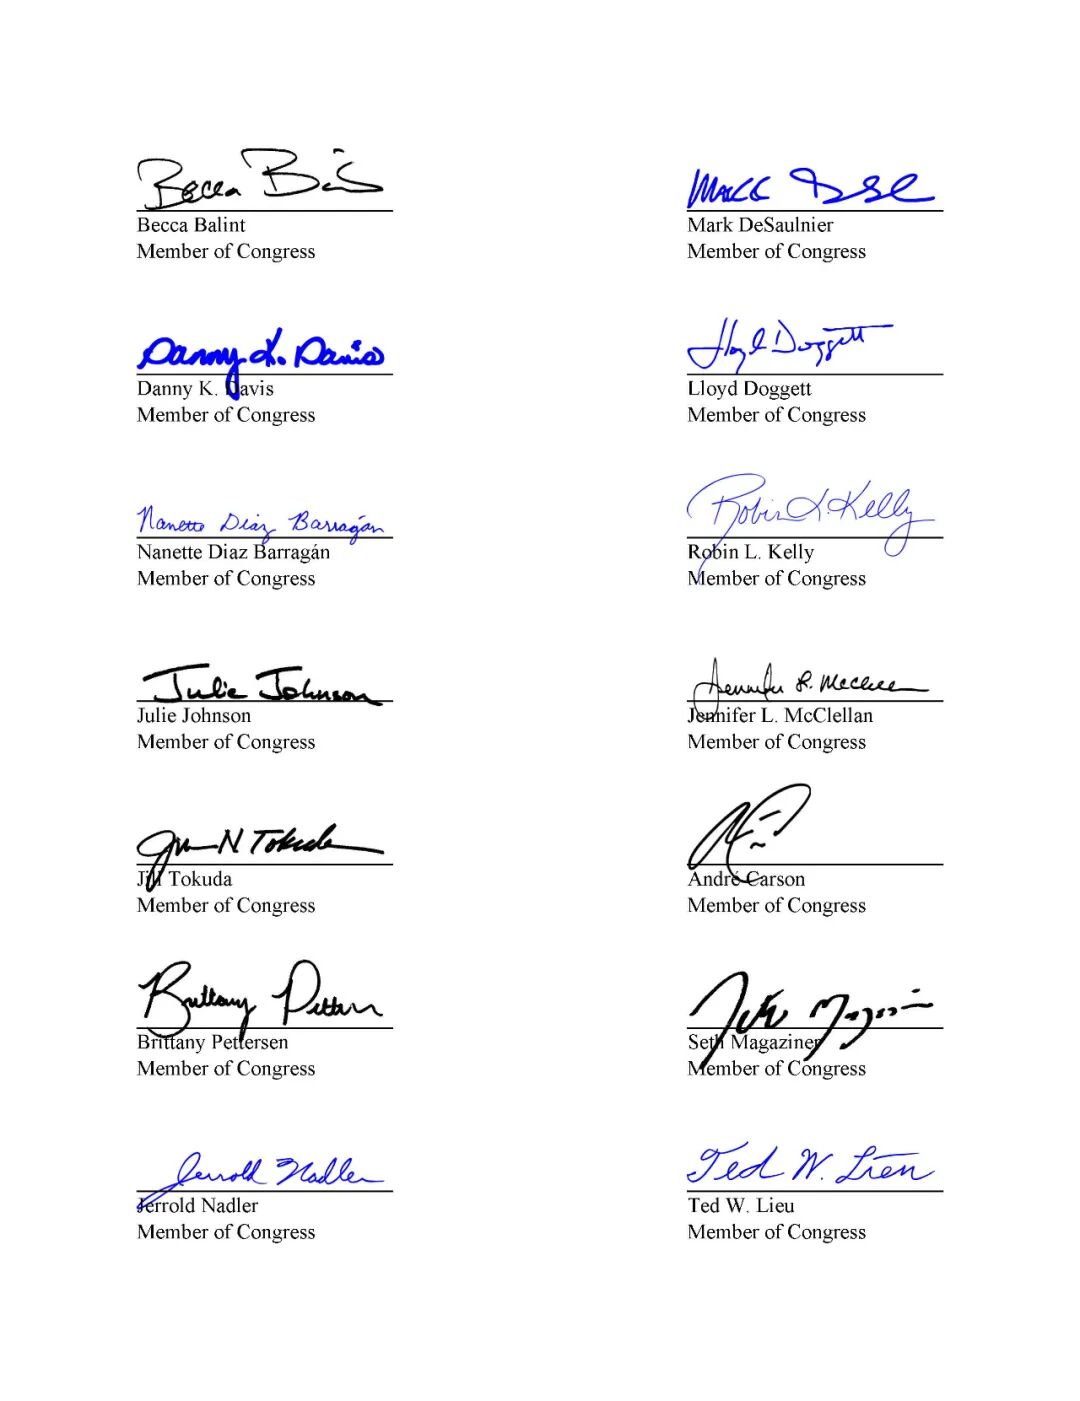 Becca B
Becca Balint
Member of Congress
Mark DeS
Mark DeSaulnier
Member of Congress
Danny K. Davis
Danny K. Davis
Member of Congress
Lloyd Doggett
Lloyd Doggett
Member of Congress
Nanette Diaz Barragán
Nanette Diaz Barragán
Member of Congress
Robin L. Kelly
Robin L. Kelly
Member of Congress
Julie Johnson
Julie Johnson
Member of Congress
Jennifer L. McClellan
Jennifer L. McClellan
Member of Congress
Jill N Tokuda
Jill Tokuda
Member of Congress
André Carson
Member of Congress
Brittany Pettersen
Brittany Pettersen
Member of Congress
Seth Magaziner
Seth Magaziner
Member of Congress
Jerrold Nadler
Jerrold Nadler
Member of Congress
Ted W. Lieu
Ted W. Lieu
Member of Congress